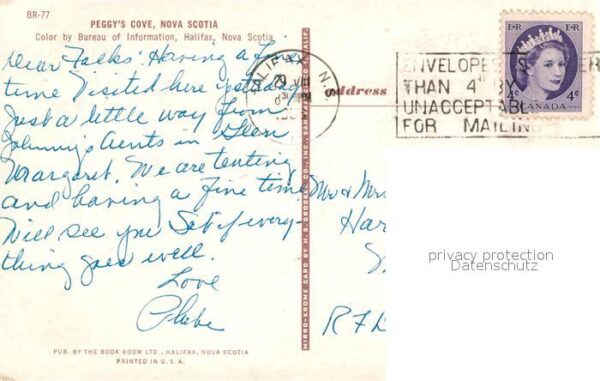 BR-77
PEGGY'S COVE, NOVA SCOTIA
Color by Bureau of Information, Halifax, Nova Scotia
Dear Folks: Having a fine
time Visited here yesterday
Just a little way from
Johnny's Aunts in Glen
Margaret. We are tenting
and having a fine time
Will see you Sat if every-
thing goes well.
Love
Phebe
PUB. BY THE BOOK ROOM LTD., HALIFAX, NOVA SCOTIA
PRINTED IN U.S.A.
MIRRO-KROME CARD BY H. S. CROCKER CO., INC., SAN
HALIFAX N.S.
Address
ENVELOPES
THAN 4" BY
UNACCEPTABLE
FOR MAILING
E II R E II R
4c CANADA 4c
Mr & Mrs
Har
S.
RFD
privacy protection
Datenschutz